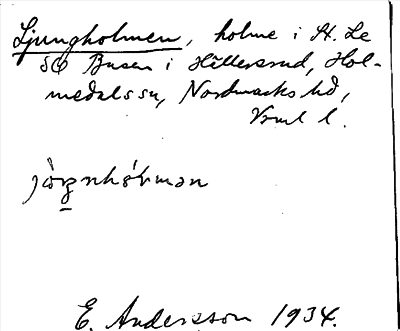 Ljungholmen, holme i St. Le
SO Busen i Hillersrud, Hol-
medals sn, Nordmarks hd,
Vrml l.
jòṉgnhɔ́ɫmən
E. Andersson 1934.